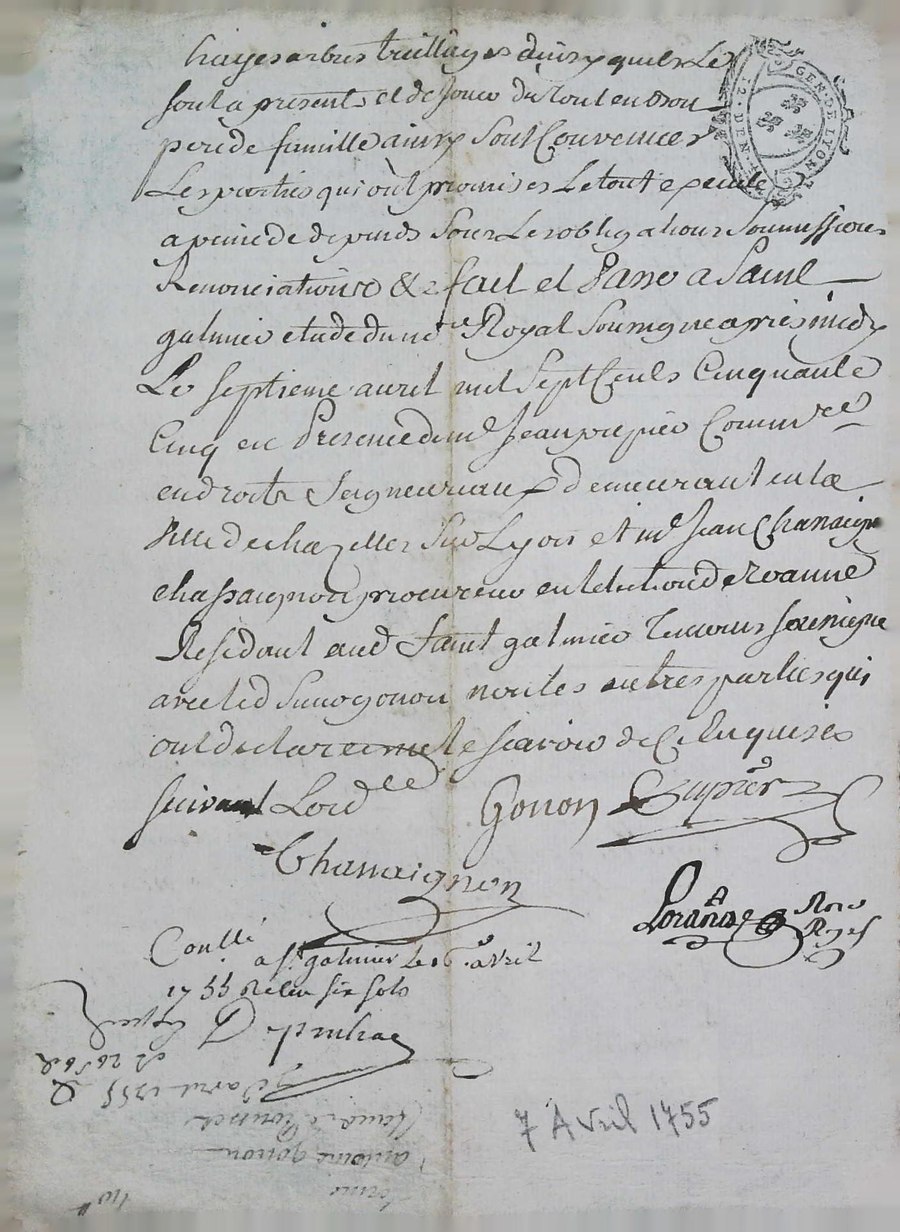 hayes arbres treillages ainsy quils Le
sont a present et de Jouir du tout en bon
pere de famille ainsy Sont Convenües
Les parties qui ont promises Le tout executé
a peine de depends Sous Les obligations Soumissions
Renonciations &c fait et Passé a Saint
galmier etude du nre Royal Soussigne apres midy
Le Septieme avril mil Sept Cents Cinquante
Cinq en Presence de me Jean Commre
en droits Seigneuriaux demeurant en la
ville de chazelles Sur Lyon et me Jean Chanaign
chassaignon procureur en lelection de Roanne
Residant aud Saint galmier Temoins Soussigne
avec led Sr gonon non les autres parties qui
ont declaré ne le scavoir de ce Enquises
suivant Lordce
Gonon Dupré
Chassaignon
Conllé a St galmier Le 16 avril
1755 Relu six sols
GEN. DE LYON
12. DEN
7 avril 1755
antoine gonon
7 Avril 1755